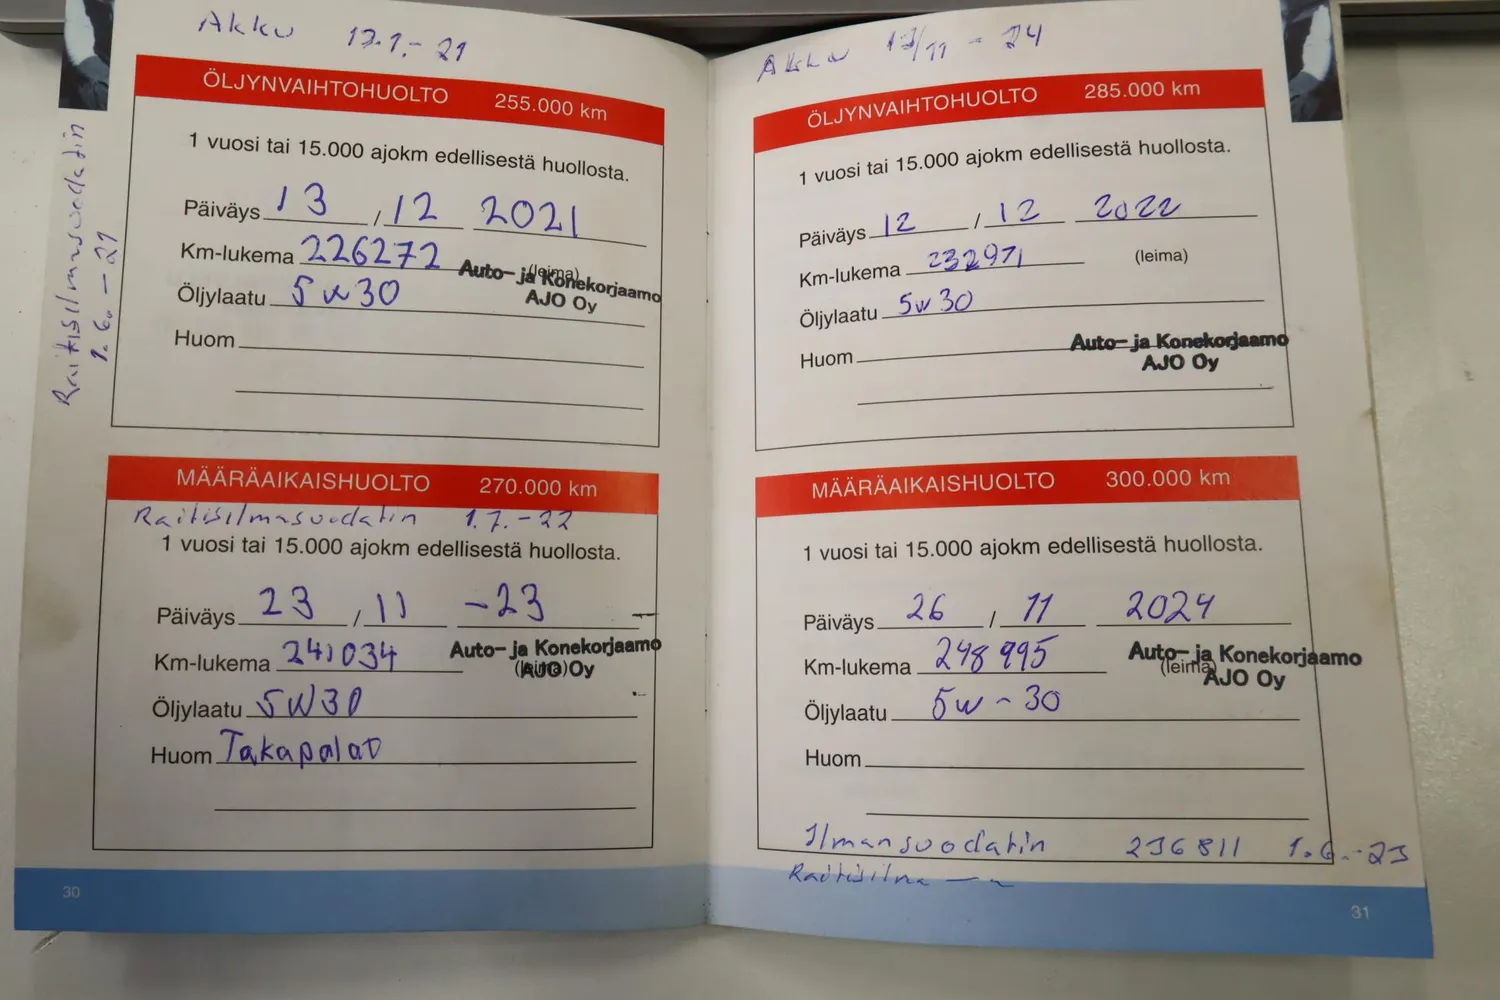 Akku 17.1.-21
Raitisilmasuodatin
1.6.-21
ÖLJYNVAIHTOHUOLTO 255.000 km
1 vuosi tai 15.000 ajokm edellisestä huollosta.
Päiväys 13 / 12 2021
Km-lukema 226272
(leima)
Auto- ja Konekorjaamo
AJO Oy
Öljylaatu 5W30
Huom
MÄÄRÄAIKAISHUOLTO 270.000 km
Raitisilmasuodatin 1.7.-22
1 vuosi tai 15.000 ajokm edellisestä huollosta.
Päiväys 23 / 11 -23
Km-lukema 241034
Auto- ja Konekorjaamo
(leima)
AJO Oy
Öljylaatu 5W30
Huom Takapalat
30
Akku 17/11 - 24
ÖLJYNVAIHTOHUOLTO 285.000 km
1 vuosi tai 15.000 ajokm edellisestä huollosta.
Päiväys 12 / 12 2022
Km-lukema 232971 (leima)
Öljylaatu 5w30
Huom
Auto- ja Konekorjaamo
AJO Oy
MÄÄRÄAIKAISHUOLTO 300.000 km
1 vuosi tai 15.000 ajokm edellisestä huollosta.
Päiväys 26 / 11 2024
Km-lukema 248995
Auto- ja Konekorjaamo
(leima)
AJO Oy
Öljylaatu 5w-30
Huom
Ilmansuodatin 236811 1.6.-23
Raitisilma —"—
31